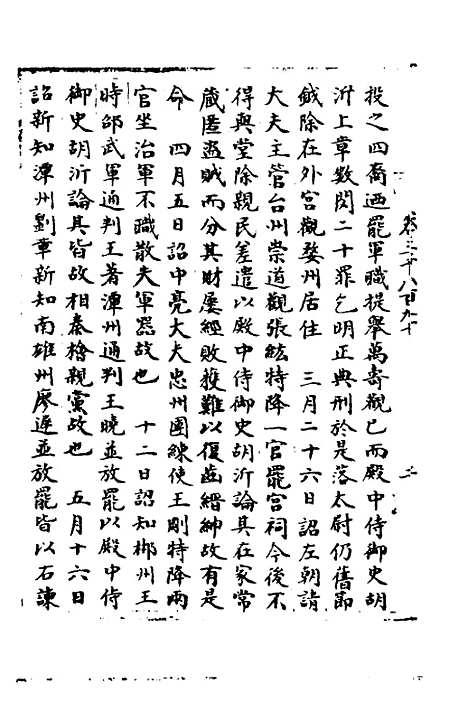 投之四裔迺罷軍職提舉萬壽觀已而殿中侍御史胡
沂上章數閎二十罪乞明正典刑於是落太尉仍舊節
鉞除在外宮觀婺州居住　三月二十六日詔左朝請
大夫主管台州崇道觀張絃特降一官罷宮祠今後不
得與堂除親民差遣以殿中侍御史胡沂論其在家常
藏匿盜賊而分其財屢經敗獲難以復齒縉紳故有是
命　四月五日詔中亮大夫忠州團練使王剛特降兩
官坐治軍不職散失軍器故也　十二日詔知郴州王
時邵武軍通判王著潭州通判王曉並放罷以殿中侍
御史胡沂論其皆故相秦檜親黨故也　五月十六日
詔新知潭州劉章新知南雄州廖遲並放罷皆以右諫
卷三千八百九十